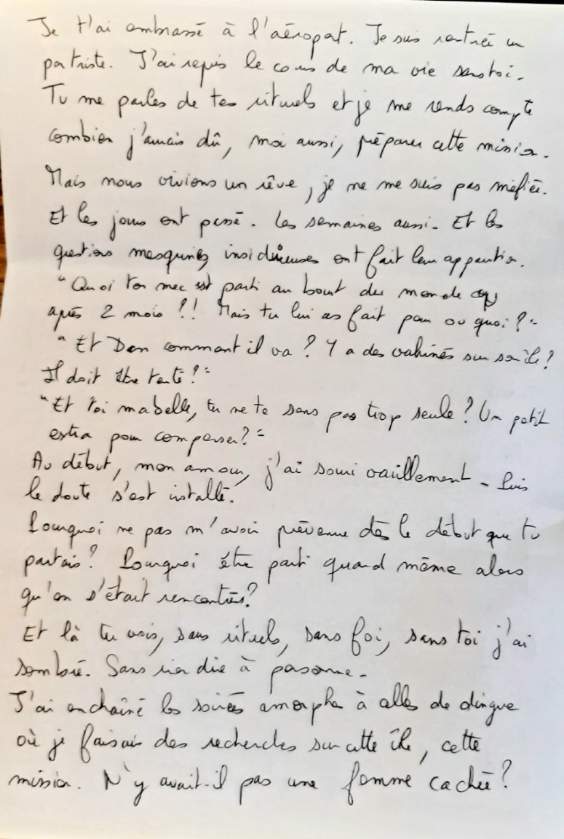 Je t'ai embrassé à l'aéroport. Je suis rentrée un
pa triste. J'ai repris le cours de ma vie sans toi.
Tu me parles de tes rituels et je me rends compte
combien j'aurais dû, moi aussi, préparer cette mission.
Mais nous vivions un rêve, je ne me suis pas méfiée.
Et les jours ont passé. Les semaines aussi. Et les
questions mesquines, insidieuses ont fait leur apparition.
"Quoi ton mec est parti au bout du monde
après 2 mois ?!! Mais tu lui as fait peur ou quoi ?"
"Et Dan comment il va ? Y a des vahinés sur son île ?
Il doit être tenté !"
"Et toi ma belle, tu ne te sens pas trop seule ? Un petit
extra pour compenser ?"
Au début, mon amour, j'ai souri vaillement. Puis
le doute s'est installé.
Pourquoi ne pas m'avoir prévenue dès le début que tu
partais ? Pourquoi être parti quand même alors
qu'on s'était rencontrés ?
Et là tu vois, sans rituels, sans foi, sans toi j'ai
sombré. Sans rien dire à personne.
J'ai enchaîné les soirées amorphe à celles de dingue
où je faisais des recherches sur cette île, cette
mission. N'y avait-il pas une femme cachée ?